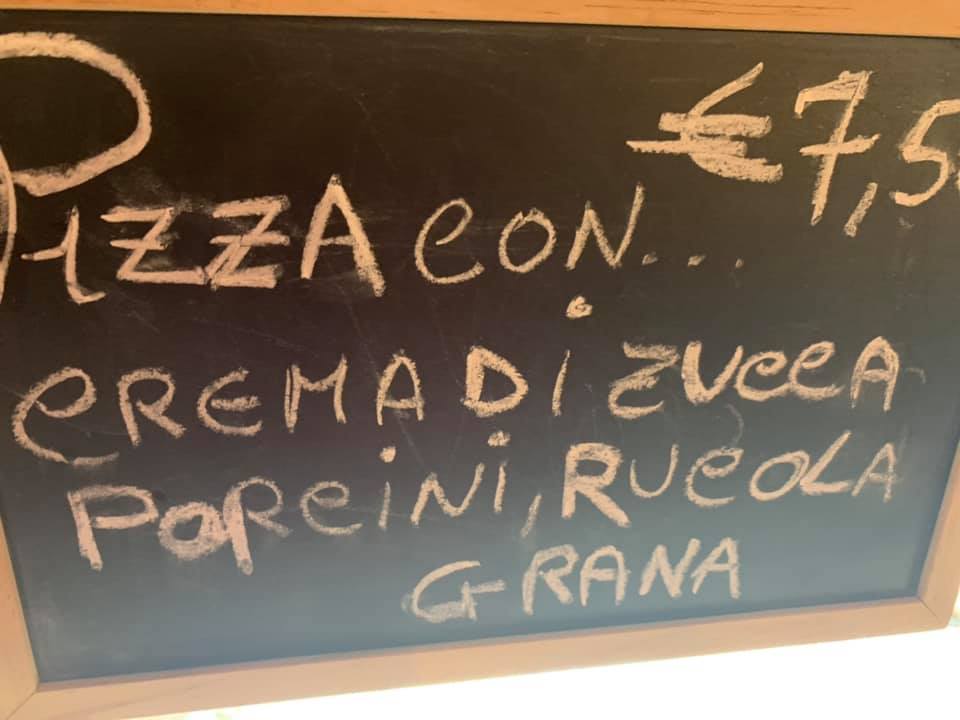 €7,5
PIZZA CON...
CREMA DI ZUCCA
PORCINI, RUCOLA
GRANA